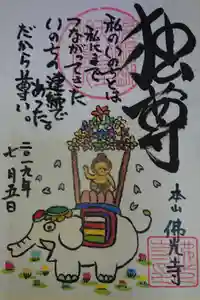 独尊
私のいのちは
私にまで
つながってきた
いのちの連続で
あった。
だから尊い。
二〇一九年
七月五日
本山佛光寺